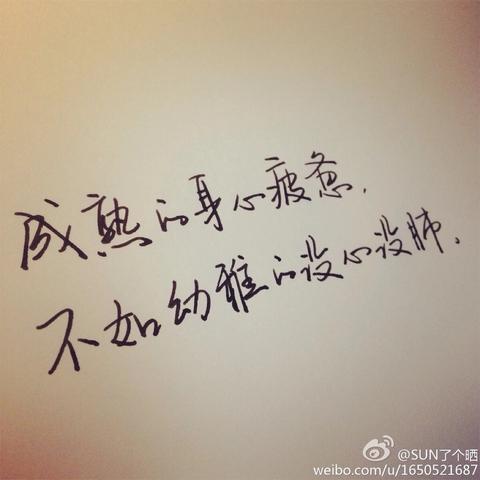 成熟的身心疲惫,
不如幼稚的没心没肺.
@SUN了个晒
weibo.com/u/1650521687